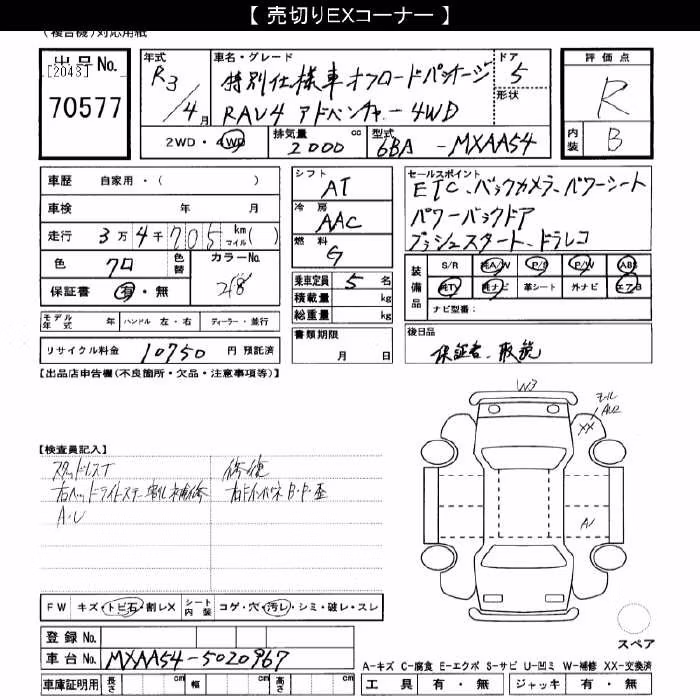 【 売切りEXコーナー 】
(複合機)対応用紙
出品No.
[2043]
70577
年式
R3/4月
車名・グレード
特別仕様車オフロードパッケージ
RAV4 アドベンチャー4WD
ドア
5
形状
評価点
R
内装
B
2WD・4WD
排気量
2000 cc
型式
6BA-MXAA54
車歴 自家用・( )
車検 年 月
走行 3万4千705 km マイル( )
色 クロ
色替
カラーNo.
218
保証書 有・無
モデル年式 年 ハンドル 左・右 ディーラー・並行
リサイクル料金 10750 円 預託済
シフト
AT
冷房
AAC
燃料
G
乗車定員 5 名
積載量 kg
総重量 kg
書類期限
月 日
セールスポイント
ETC、バックカメラ、パワーシート
パワーバックドア
プッシュスタート、ドラレコ
装備品
S/R 純A/W P/S P/W ABS
純TV 純ナビ 革シート 外ナビ エアB
ナビ型番:
後日品
保証書、取説
【出品店申告欄(不良箇所・欠品・注意事項等)】
【検査員記入】
スタッドレスナ
A・U
修復
FW キズ・トビ石・割レX シート内装 コゲ・穴・汚レ・シミ・破レ・スレ
登録No.
車台No. MXAA54-5020967
車庫証明用 長さ cm 幅 cm 高さ cm
W3
モール
AU2
XX
A1
スペア
A-キズ C-腐食 E-エクボ S-サビ U-凹ミ W-補修 XX-交換済
工具 有・無 ジャッキ 有・無